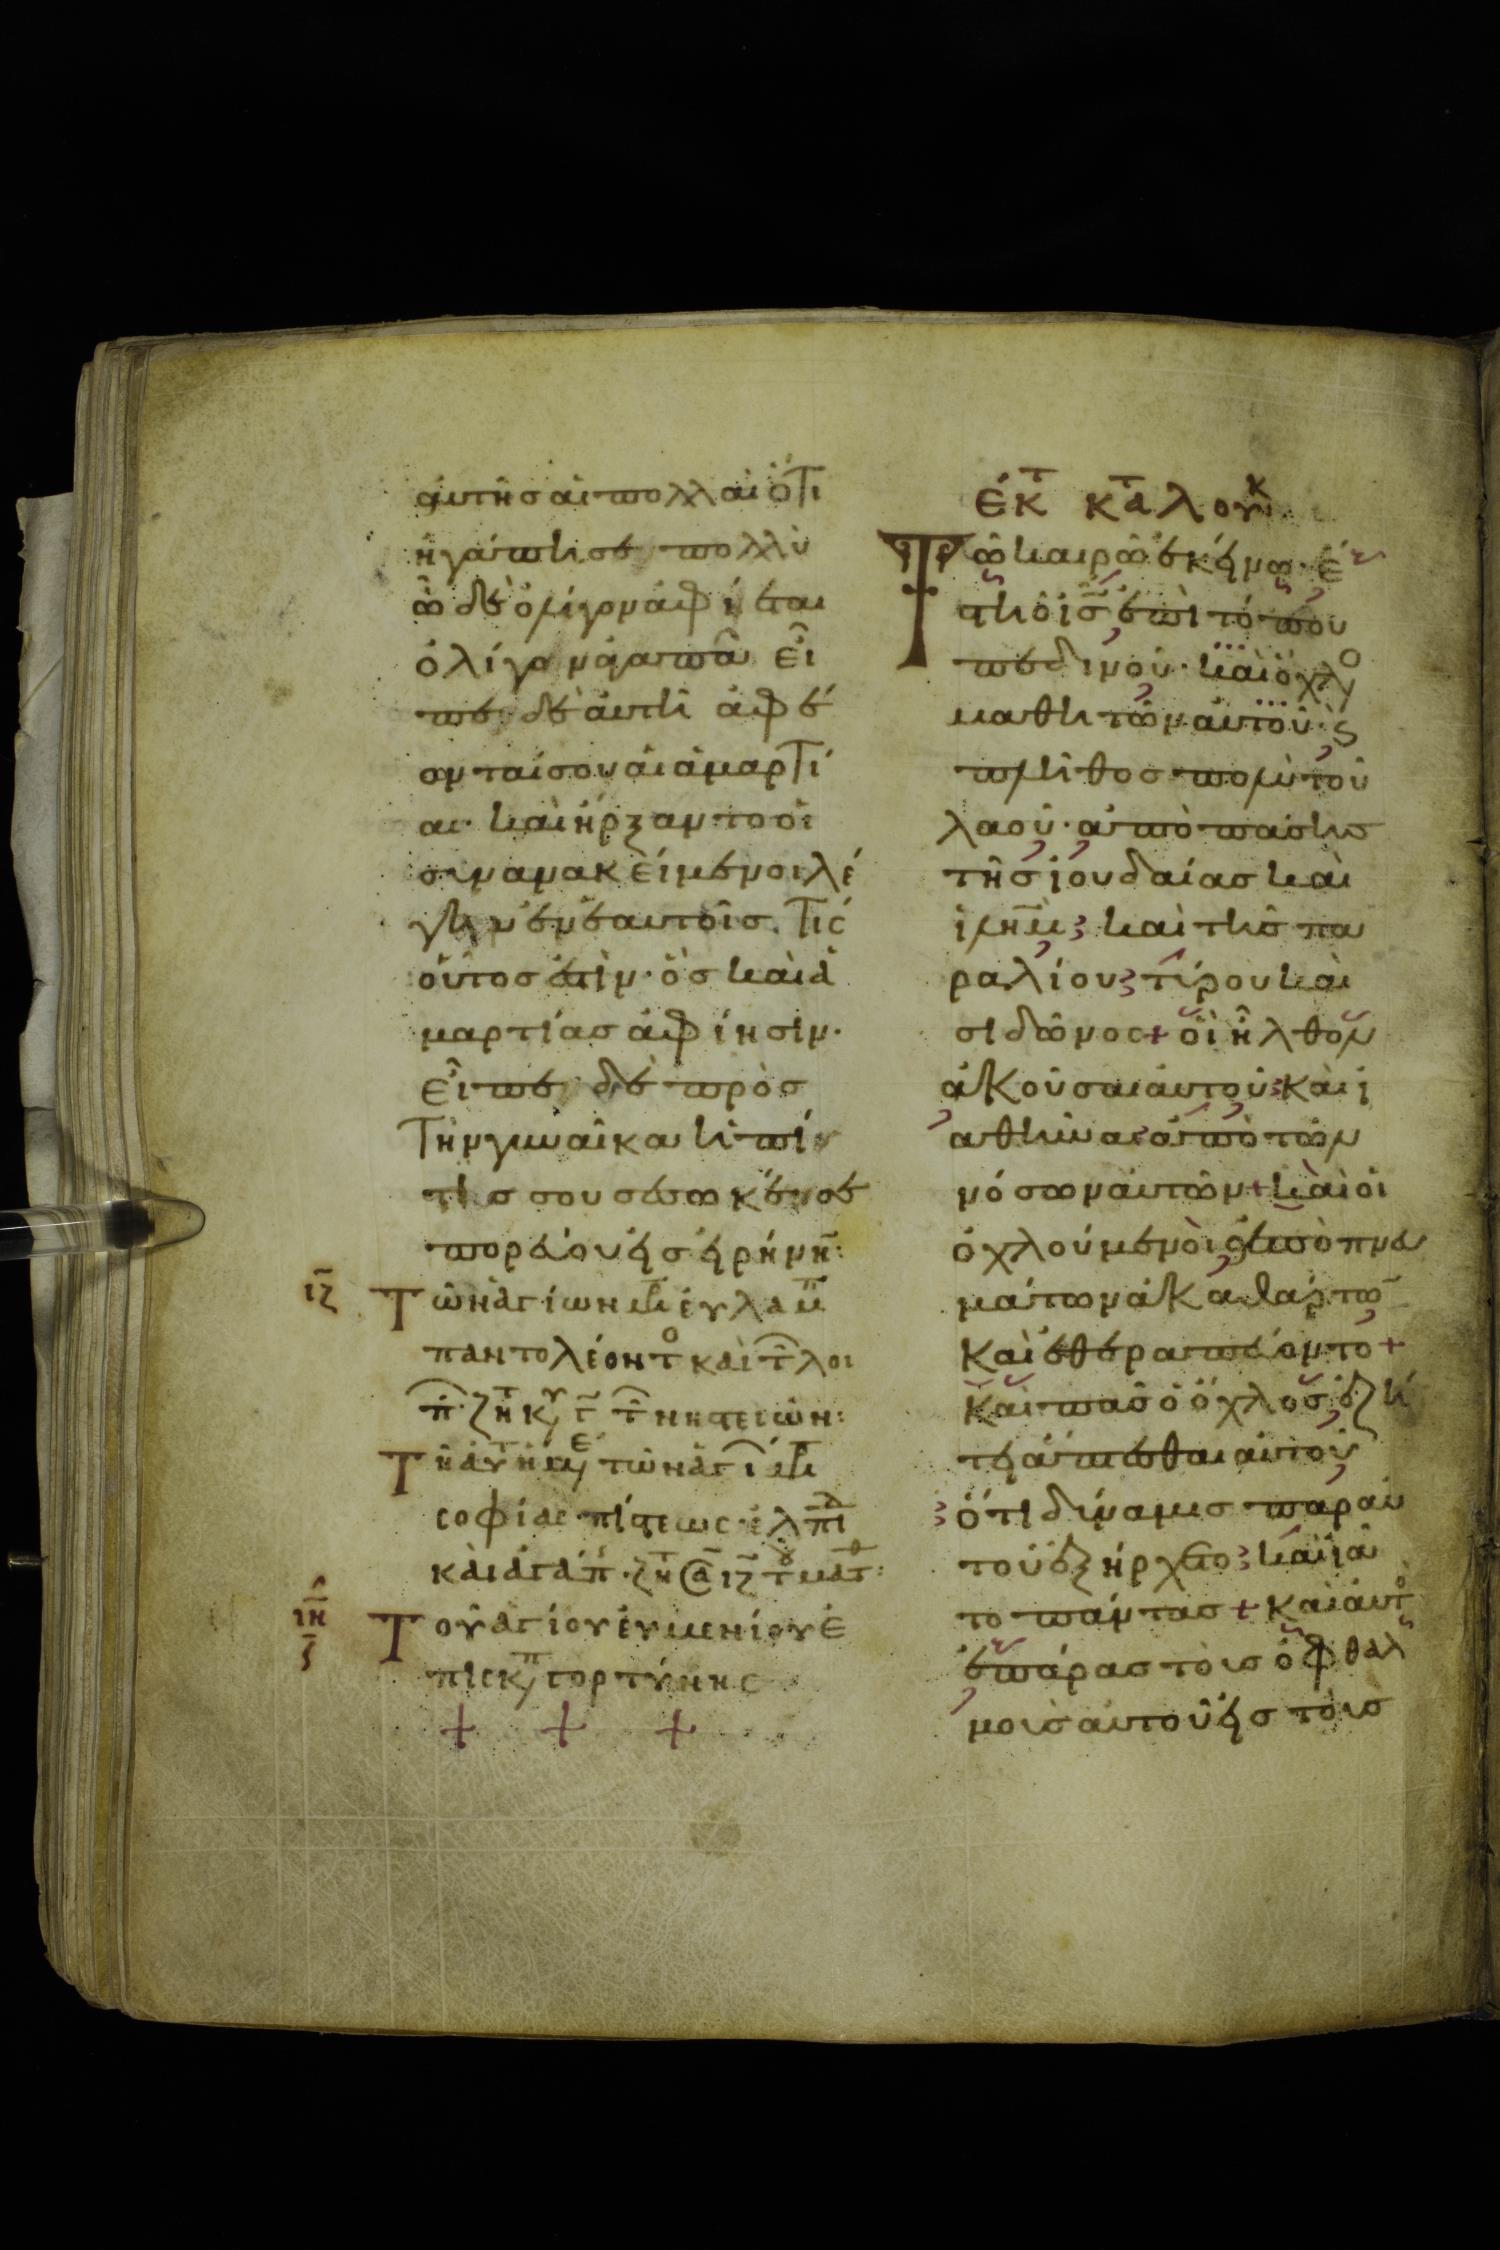 ἀυτῆσ ἁι πολλαὶ ὅτι
ἠγάπησε πολλὺ
ὧ δὲ ὀλίγον ἀφίεται
ὀλίγα ἀγαπᾶ εἶ
πε δὲ ἀυτῆ ἀφέ
ονταί σου ἁι ἁμαρτί
αι· καὶ ἤρξαντο ὁι
συνανακείμενοι λέ
γειν ἐν ἑαυτοῖσ. τίς
οὗτοσ ἐστὶν· ὃσ καὶ ἁ
μαρτίασ ἀφίησιν·
εἶπε δὲ πρὸσ
τὴν γυναῖκα ἡ πίσ
τισ σου σέσωκέν σε
πορέυου ἐισ ἐιρήνη̅:
ιζ Τῶν ἁγίων μ̅ρ ἐυλαμ̅π
παντολέοντο καὶ τ λοι
π· ζητ κυ γ τ νηστειῶν:
Τῆ ἀυτ ἡμε τῶν ἁγί μ̅ρ
σοφίας πίστεως ἐλπιδ
καὶ ἀγάπ· ζητ α ιζ του ματθ:
ιη Τοῦ ἁγίου ἐυμενίου ἐ
ζ πισκπ γορτύνης
+ + +
ἐκ τ κατα λουκ
Τῶ καιρῶ ἐκείνω· ἔ
στη ὁ ι̅σ̅ ἐπὶ τόπου
πεδινοῦ· καὶ ὄχλο
μαθητῶν ἀυτοῦ· ϛ
πλῆθοσ πολὺ τοῦ
λαοῦ· ἀπὸ πάσησ
τῆσ ἰουδαίασ καὶ
ἰλη̅μ̅ καὶ τῆσ πα
ραλίου τύρου καὶ
σιδῶνος + ὃι ἦλθον
ἀκοῦσαι ἀυτοῦ καὶ ἰ
αθῆναι ἀπὸ τῶν
νόσων ἀυτῶν + καὶ ὁι
ὀχλούμενοι ὑπὸ πνευ
μάτων ἀκαθάρτω̅
καὶ ἐθεραπέυοντο +
καὶ πασ ὁ ὄχλοσ ἐζή
τει ἅπτεσθαι ἀυτοῦ
ὅτι δύναμισ παρ ἀυ
τοῦ ἐξήρχετο καὶ ἰᾶ
το πάντασ + καὶ ἀυτο
ἐπάρασ τοὺσ ὀφθαλ
μοὺσ ἀυτοῦ ἐισ τοὺσ